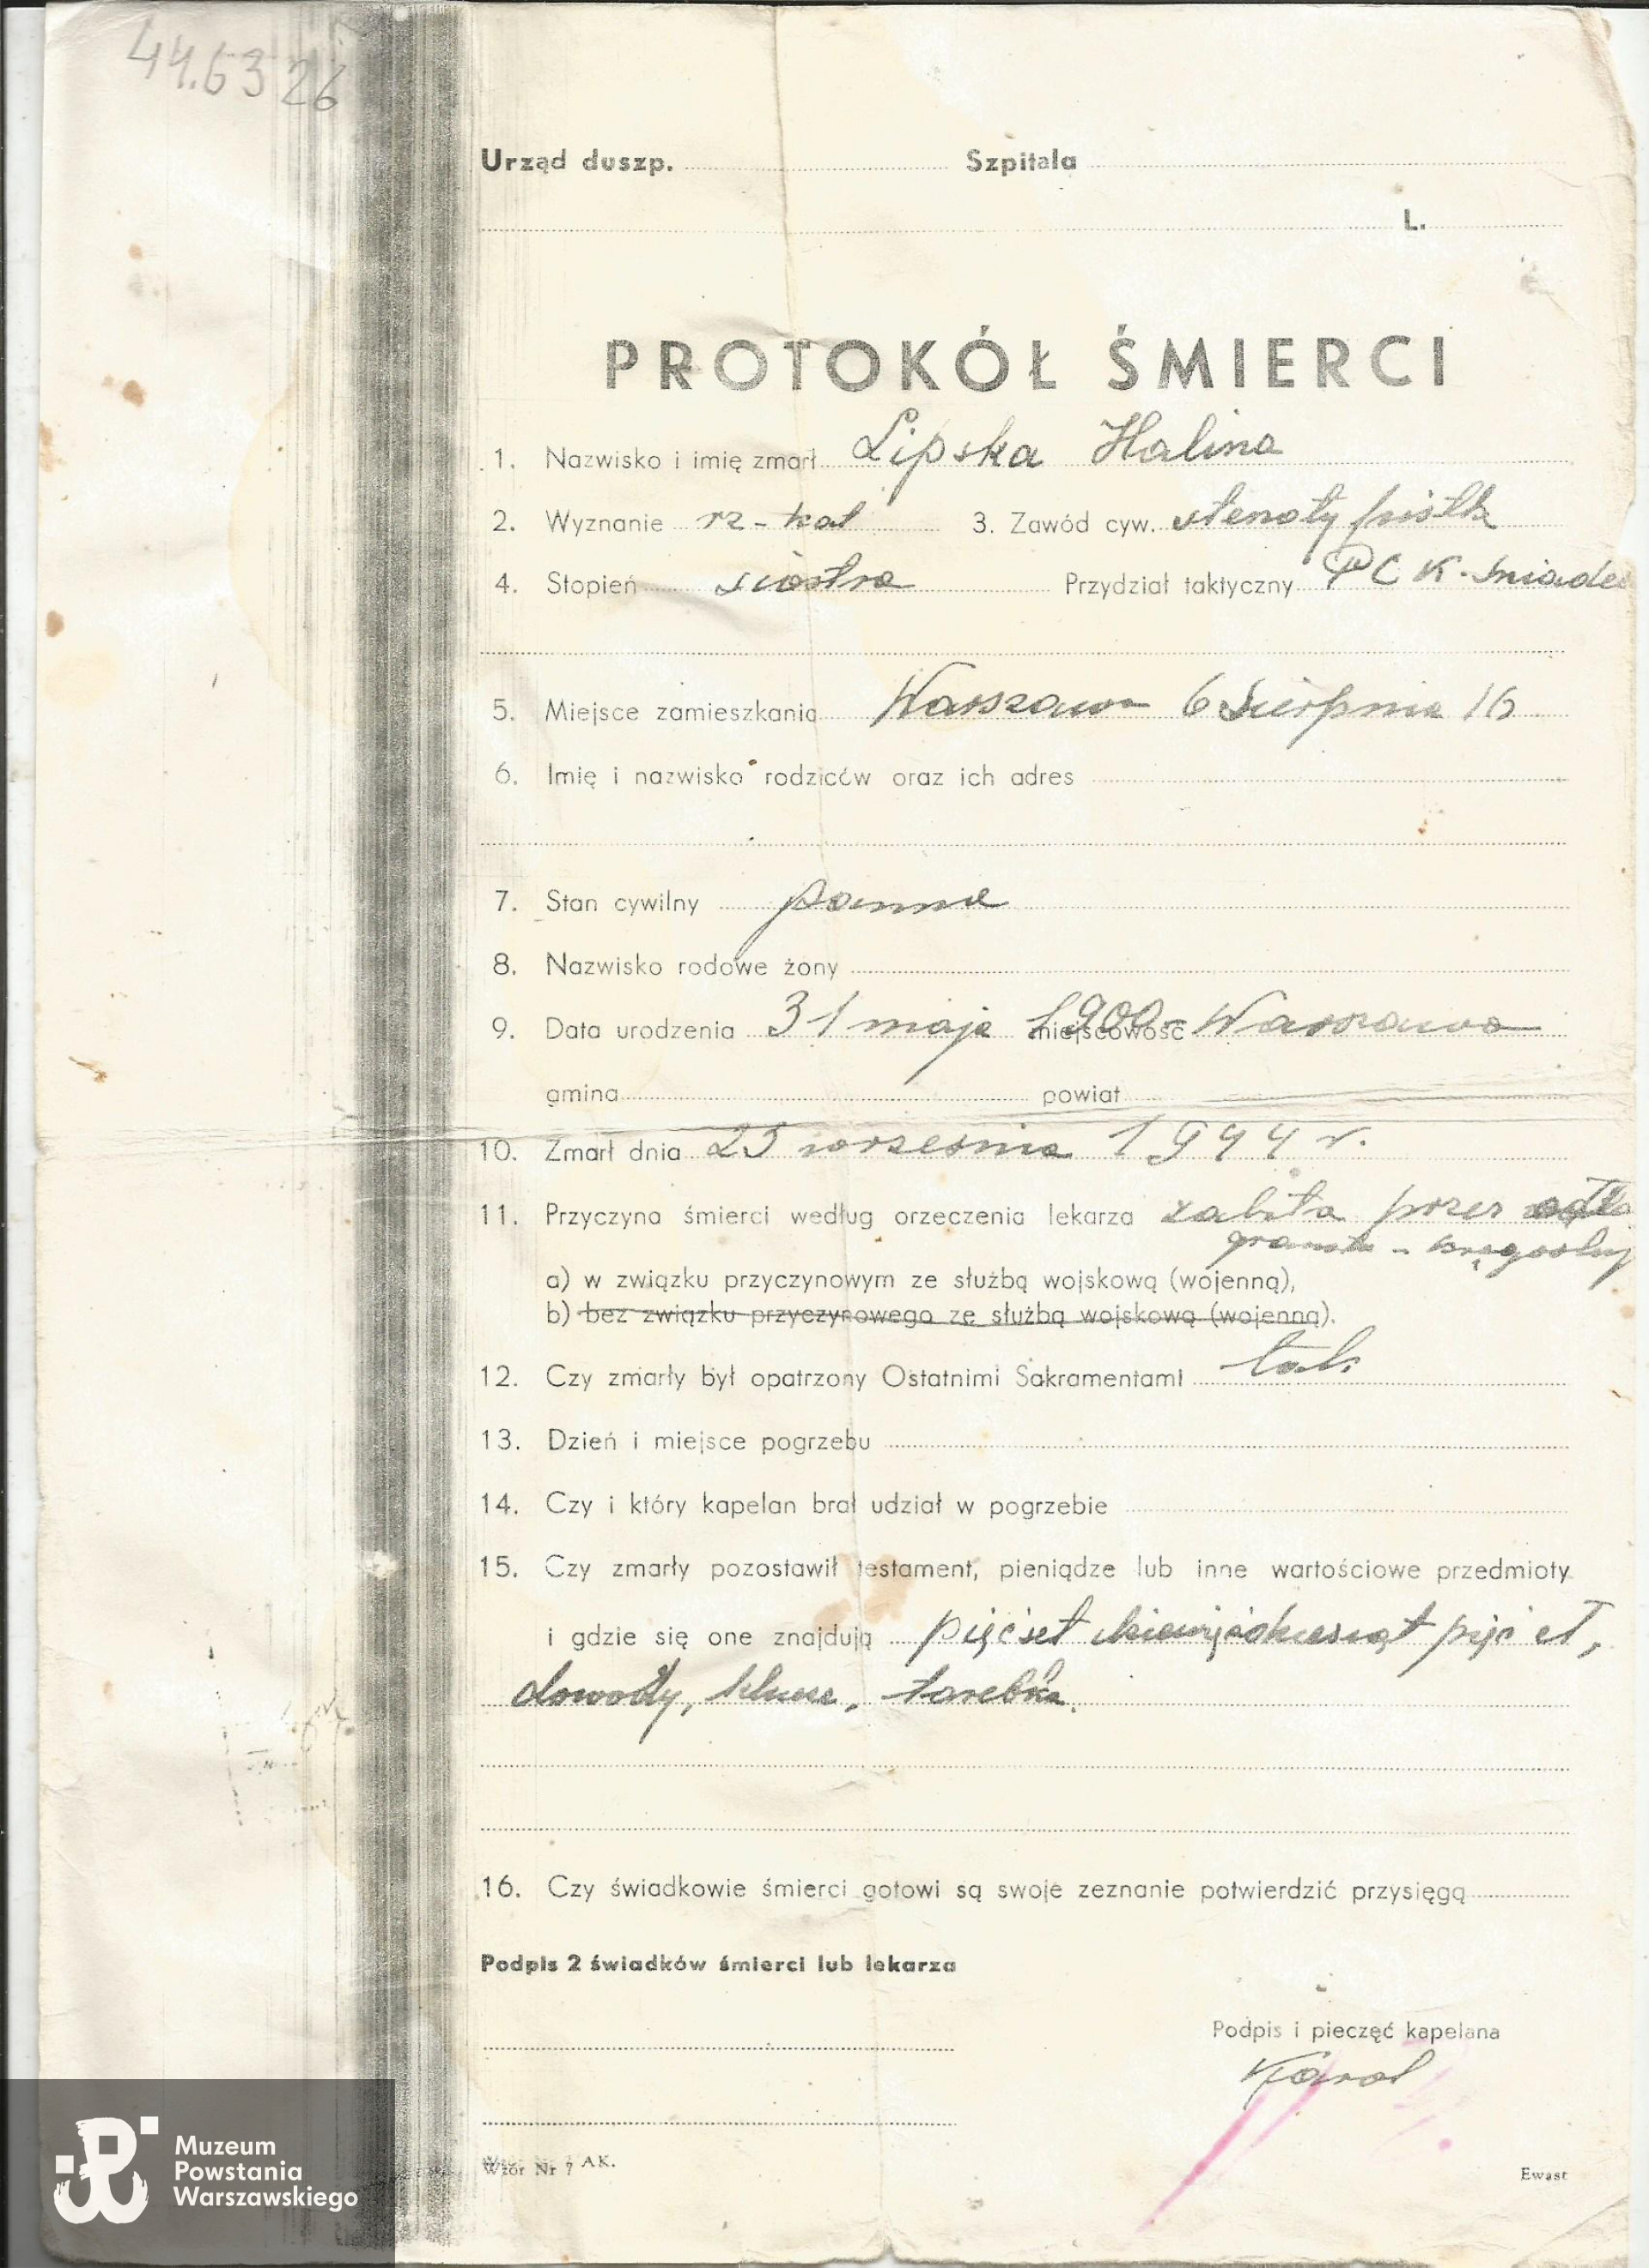 44.6326
Urząd duszp. Szpitala
L.
PROTOKÓŁ ŚMIERCI
1. Nazwisko i imię zmarł. Lipska Halina
2. Wyznanie rz-kat 3. Zawód cyw. stenotypistka
4. Stopień siostra Przydział taktyczny PCK. Śniadec
5. Miejsce zamieszkania Warszawa 6 Sierpnia 16
6. Imię i nazwisko rodziców oraz ich adres
7. Stan cywilny panna
8. Nazwisko rodowe żony
9. Data urodzenia 31 maja 1900 miejscowość Warszawa
gmina powiat
10. Zmarł dnia 23 września 1944 r.
11. Przyczyna śmierci według orzeczenia lekarza zabita przez
granatu -
a) w związku przyczynowym ze służbą wojskową (wojenną),
b) bez związku przyczynowego ze służbą wojskową (wojenną).
12. Czy zmarły był opatrzony Ostatnimi Sakramentami tak
13. Dzień i miejsce pogrzebu
14. Czy i który kapelan brał udział w pogrzebie
15. Czy zmarły pozostawił testament, pieniądze lub inne wartościowe przedmioty
i gdzie się one znajdują pięćset dziewięćdziesiąt pięć zł,
dowody, klucze, torebka.
16. Czy świadkowie śmierci gotowi są swoje zeznanie potwierdzić przysięgą
Podpis 2 świadków śmierci lub lekarza
Podpis i pieczęć kapelana
Karol
Wzór Nr 7 AK.
Ewast
Muzeum
Powstania
Warszawskiego